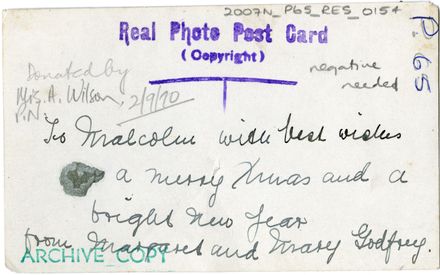 2007N_P65_RES_0154
Real Photo Post Card
(Copyright)
P 65
Donated by
Mrs. A. Wilson,
P.N. 2/9/70
negative
needed
To Malcolm with best wishes
a merry Xmas and a
bright New Year
from Margaret and Mary Godfrey.
ARCHIVE_COPY